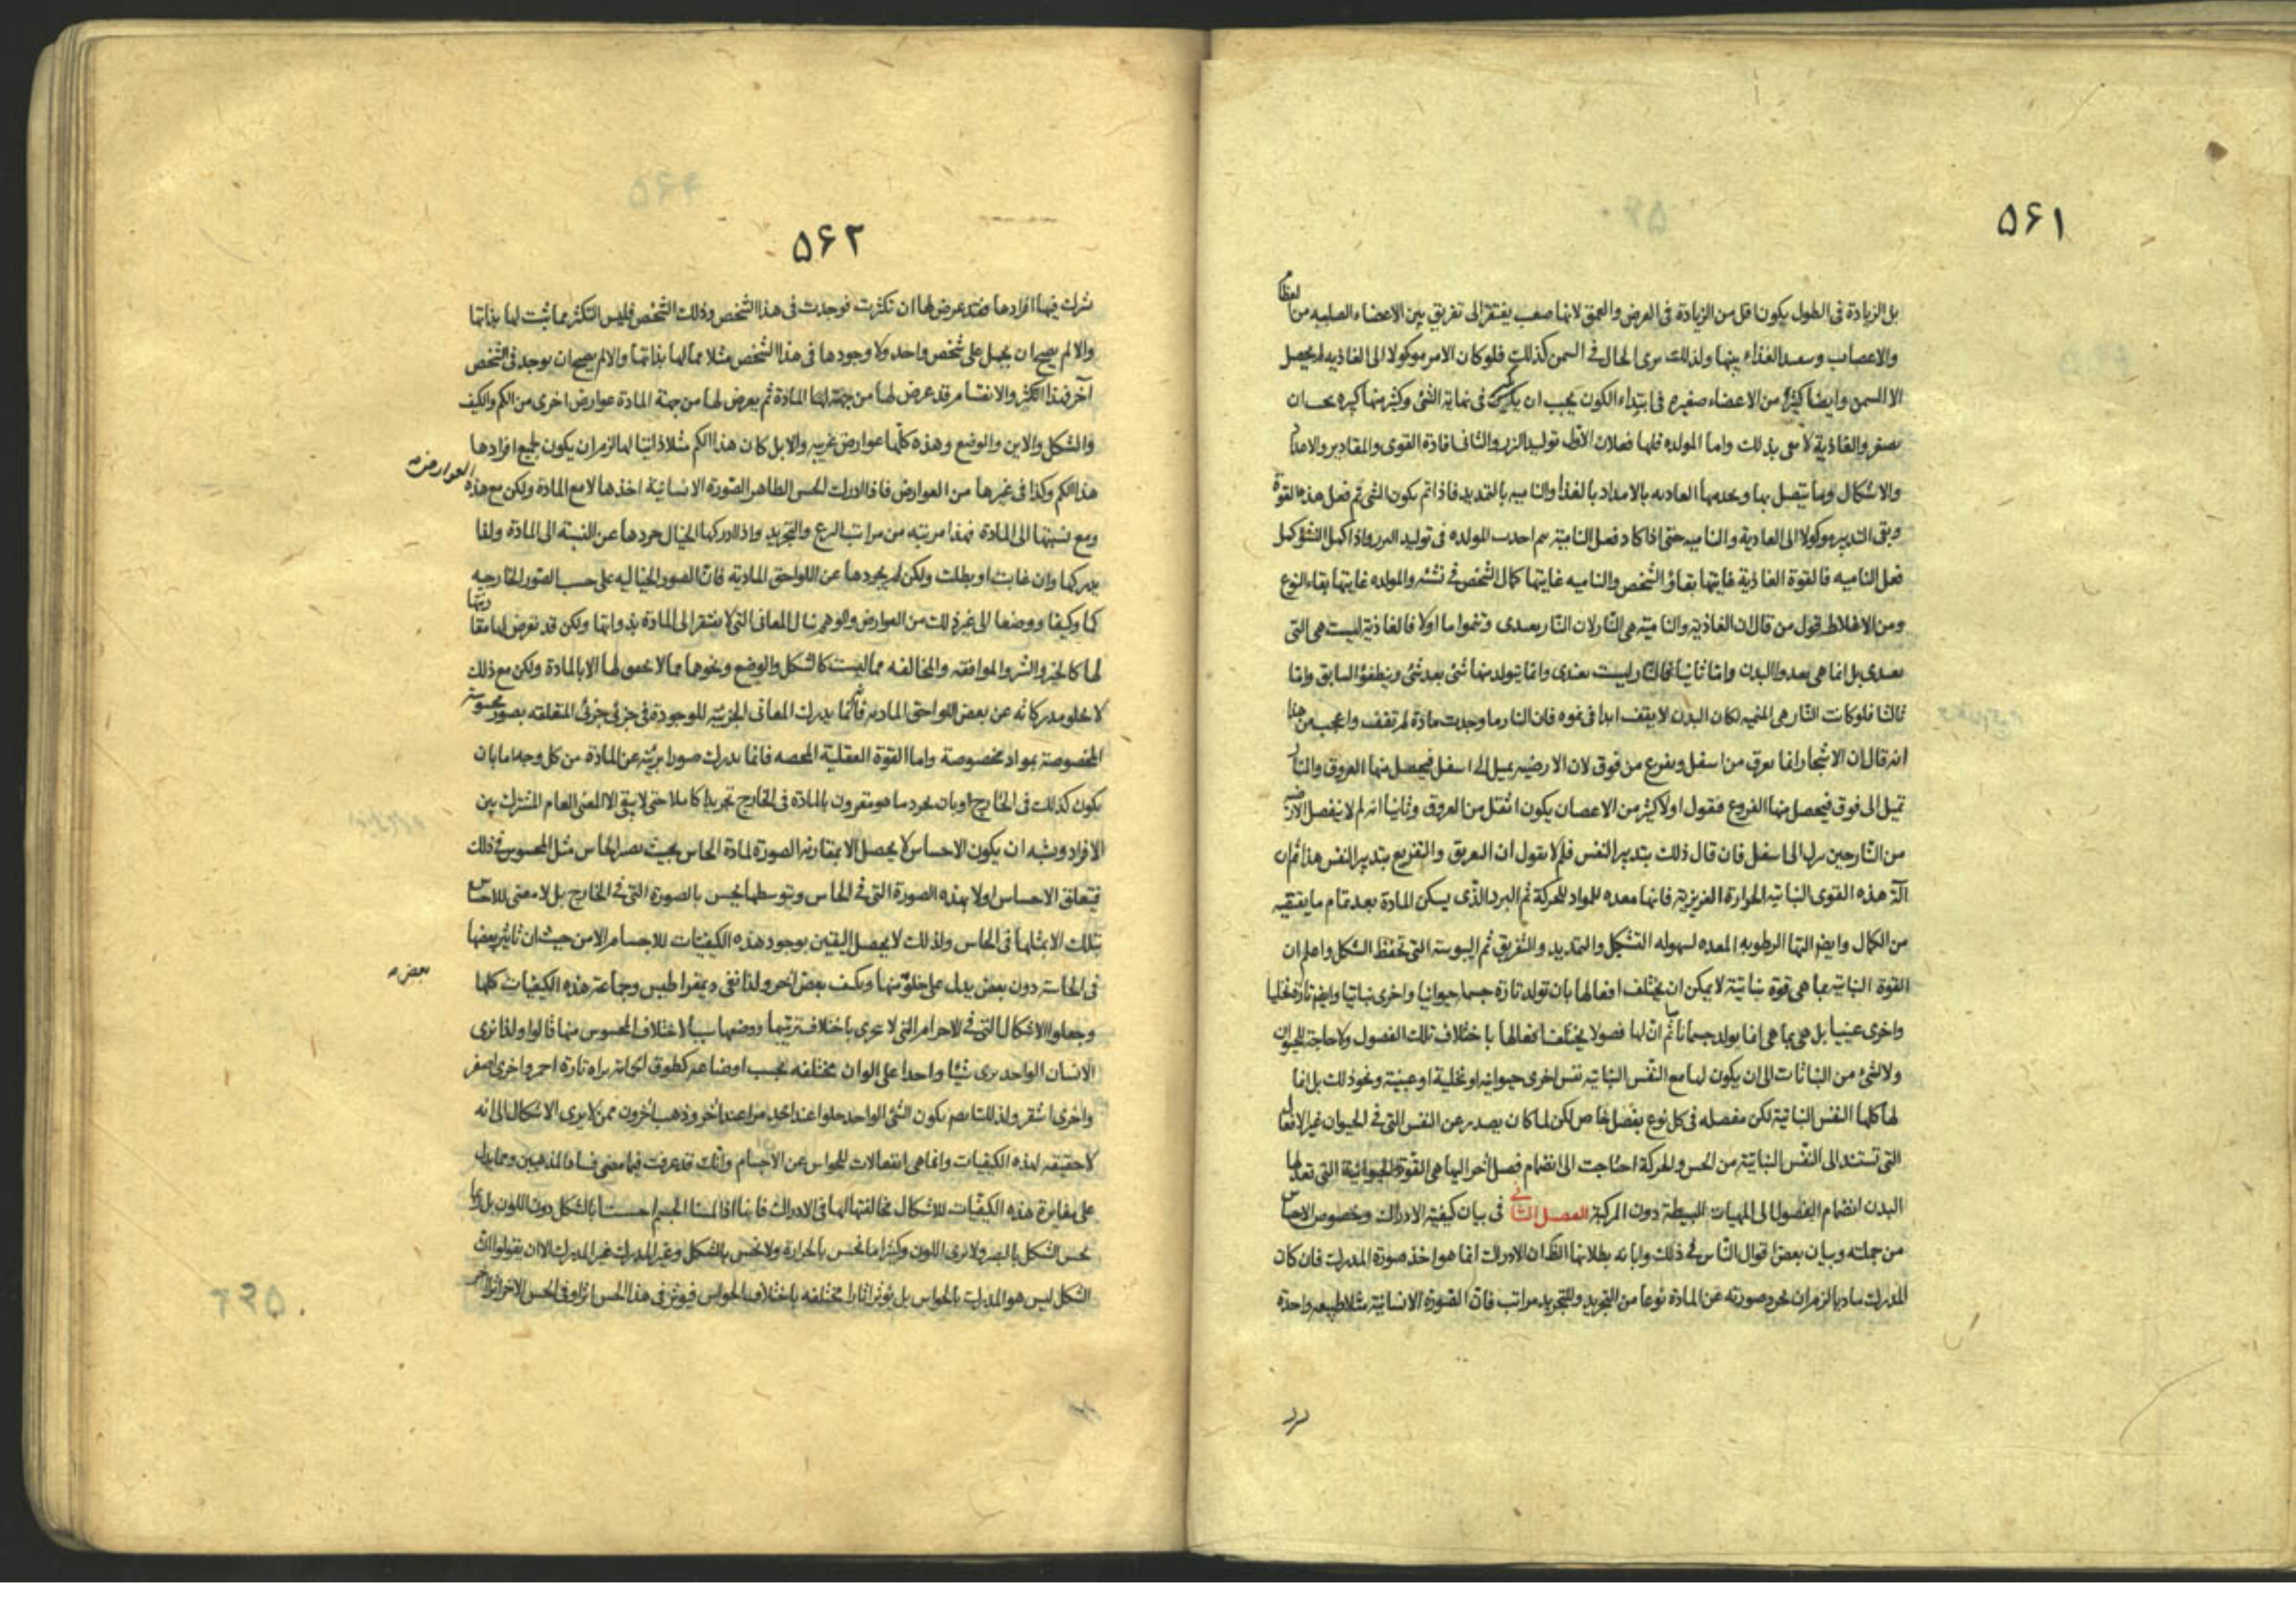 ۵۶۱
بل الزيادة فى الطول يكون اقل من الزيادة فى العرض والعمق لانها صعب يفتقر الى تفريق بين الاعضاء الصلبه من العظام
والاعصاب وسعد الغذاء بينها ولذلك يرى الحال فى السمن كذلك فلو كان الامر موكولا الى الغاذيه لم يحصل
الا السمن وايضا كثير من الاعضاء صغيره فى ابتداء الكون يجب ان يكبر فى نهاية الشئ وكثير منها كبيره يجب ان
يصغر والغاذية لا تفى بذلك واما المولده فلها فعلان الاول توليد البزر والثانى افادة القوى والمقادير والاعداد
والاشكال وما يتصل بها ويخدمها الغاديه بالامداد بالغذاء والناميه بالتمديد فاذا تم يكون الشئ تم فعل هذه القوة
وبقى التدبير موكولا الى الغادية والناميه حتى اذا كاد فعل النامية يتم احدث المولده فى توليد البزر واذا كمل النشؤ كمل
فعل الناميه فالقوة الغاذية غايتها بقاؤ الشخص والناميه غايتها كمال الشخص فى نشئه والمولده غايتها بقاء النوع
ومن الاغلاط قول من قال ان الغاذية والنامية هى النار لان النار يغتذى وتنموا ما اولا فالغاذية ليست هى التى
يغتذى بل انما هى يغذوا البدن واما ثانيا فالنار ليست يغتذى وانما يتولد منها شئ بعد شئ وينطفؤ السابق واما
ثالثا فلو كانت النار هى المنميه لكان البدن لا يقف ابدا فى نموه فان النار ما وجدت مادة لم تقف واعجب من هذا
انه قال ان الاشجار انما يعرق من اسفل ويفرع من فوق لان الارضيه يميل الى اسفل فيحصل منها العروق والنار
تميل الى فوق فيحصل منها الفروع فنقول اولا كثير من الاغصان يكون اثقل من العروق وثانيا انه لم لا ينفصل الارض
من النار حين ينزل الى اسفل فان قال ذلك بتدبير النفس فلم لا يقول ان التعريق والتفريع بتدبير النفس هذا ثم ان
آلة هذه القوى النباتيه الحرارة الغريزية فانها معده للمواد للحركة ثم البرد الذى يسكن المادة بعد تمام ما يقتضيه
من الكمال وايضم اليها الرطوبه المعده لسهوله التشكل والتمديد والتفريق ثم اليبوسة التى تحفظ الشكل واعلم ان
القوة النباتية بما هى قوة نباتية لا يمكن ان يختلف افعالها بان تولد تارة جسما حيوانيا واخرى نباتيا وايضا تارة نخليا
واخرى عنبيا بل هى بما هى انما يولد جسما نباتيا ثم ان لها فصولا يختلف افعالها باختلاف تلك الفصول ولا حاجة للحيوان
ولا لشئ من النباتات الى ان يكون لها مع النفس النباتيه نفس اخرى حيوانيه او نخلية او عنبية ونحو ذلك بل انما
لها كلها النفس النباتية لكن مفصله فى كل نوع بفصل خاص لكن لما كان يصدر عن النفس التى فى الحيوان غير الافعال
التى تستند الى النفس النباتية من الحس والحركة احتاجت الى انضمام فصل آخر اليها هى القوة الحيوانية التى تعد لها
البدن انضمام الفصول الى المهيات البسيطة دون المركبة الفصل الثانى فى بيان كيفية الادراك وبخصوص الاحساس
من جملته وبيان بعض اقوال الناس فى ذلك وابانه بطلانها الظاهر ان الادراك انما هو اخذ صورة المدرك فان كان
المدرك ماديا لزم ان يجرد صورته عن المادة نوعا من التجريد وللتجريد مراتب فان الصورة الانسانية مثلا طبيعه واحدة
۵۶۲
يشرك فيها افرادها فقد عرض لها ان تكثرت فوجدت فى هذا الشخص وذلك الشخص فليس التكثر مما ثبت لها بذاتها
والا لم يصح ان يحمل على شخص واحد ولا وجودها فى هذا الشخص مثلا مما لها بذاتها والا لم يصح ان يوجد فى شخص
آخر فهذا التكثر والانقسام قد عرض لها من جهة المادة ثم يعرض لها من جهة المادة عوارض اخرى من الكم والكيف
والشكل والاين والوضع وهذه كلها عوارض غريبه والا بل كان هذا الكم مثلا ذاتيا لها لزم ان يكون لجميع افرادها
هذا الكم وكذا فى غيرها من العوارض فاذا ادرك الحس الظاهر الصورة الانسانية اخذها لا مع المادة ولكن مع هذه العوارض
ومع نسبتها الى المادة فهذا مرتبه من مراتب النزع والتجريد واذا ادركها الخيال جردها عن النسبة الى المادة ولذا
يدركها وان غابت او بطلت ولكن لم يجردها عن اللواحق المادية فان الصور الخياليه على حسب الصور الخارجيه
كما وكيفا ووضعا الى غير ذلك من العوارض والوهم ينال المعانى التى لا يفتقر الى المادة بذواتها ولكن قد تعرض لها
لها كالخير والشر والموافقه والمخالفه مما ليست كالشكل والوضع ونحوها مما لا تحقق لها الا بالمادة ولكن مع ذلك
لا يخلو مدركاته عن بعض اللواحق الماديه فانها يدرك المعانى الجزئية الموجودة فى جزئى جزئى المتعلقه بصور محسوسة
المخصوصة بمواد مخصوصة واما القوة العقلية المحضه فانما يدرك صورا بريئه عن المادة من كل وجه اما بان
يكون كذلك فى الخارج او بان يجرد ما هو مقرون بالمادة فى الخارج تجريدا كاملا حتى لا يبقى الا المعنى العام المشترك بين
الافراد ويشبه ان يكون الاحساس لا يحصل الا بمقارنة الصورة لمادة الحاس بحيث يصير الحاس مثل المحسوس فى ذلك
فيتعلق الاحساس اولا بهذه الصورة التى فى الحاس وبتوسطها يحس بالصورة التى فى الخارج بل لا معنى للاحساس
بتلك الا بمثلها فى الحاس ولذلك لا يحصل اليقين بوجود هذه الكيفيات للاجسام الا من حيث ان تاثير بعضها
فى الحاسة دون بعض يدل على خلو منها وبكيف بعض آخر ولذا نفى ديمقراطيس وجماعة هذه الكيفيات كلها بعض
وجعلوا الاشكال التى فى الاجرام التى لا تتجزى باختلاف ترتيبها ووضعها سببا لاختلاف المحسوس منها قالوا ولذا نرى
الانسان الواحد يرى شيئا واحدا على الوان مختلفه بحسب اوضاعه كطوق الحمامة يراه تارة احمر واخرى اصفر
واخرى اشقر ولذلك ايضا يكون الشئ الواحد حلوا عند احد مرا عند آخر وذهب آخرون ممن لا يرى الاشكال الى انه
لا حقيقه لهذه الكيفيات وانما هى انفعالات للحواس عن الاجسام وانت قد عرفت فيما مضى فساد المذهبين ومما يدل
على مغايرة هذه الكيفيات للاشكال مخالفتها لها فى الادراك فانا اذا لمسنا الجسم احسسنا بالشكل دون اللون بل ربما
نحس الشكل بالبصر ولا نرى اللون وكثيرا ما نحس بالحرارة ولا نحس بالشكل وغير المدرك غير المدرك الا ان يقولوا ان
الشكل ليس هو المدرك بالحواس بل يؤثر اثارا مختلفه باختلاف الحواس فيؤثر فى هذا الحس اثرا وفى الحس الاخر اثرا آخر